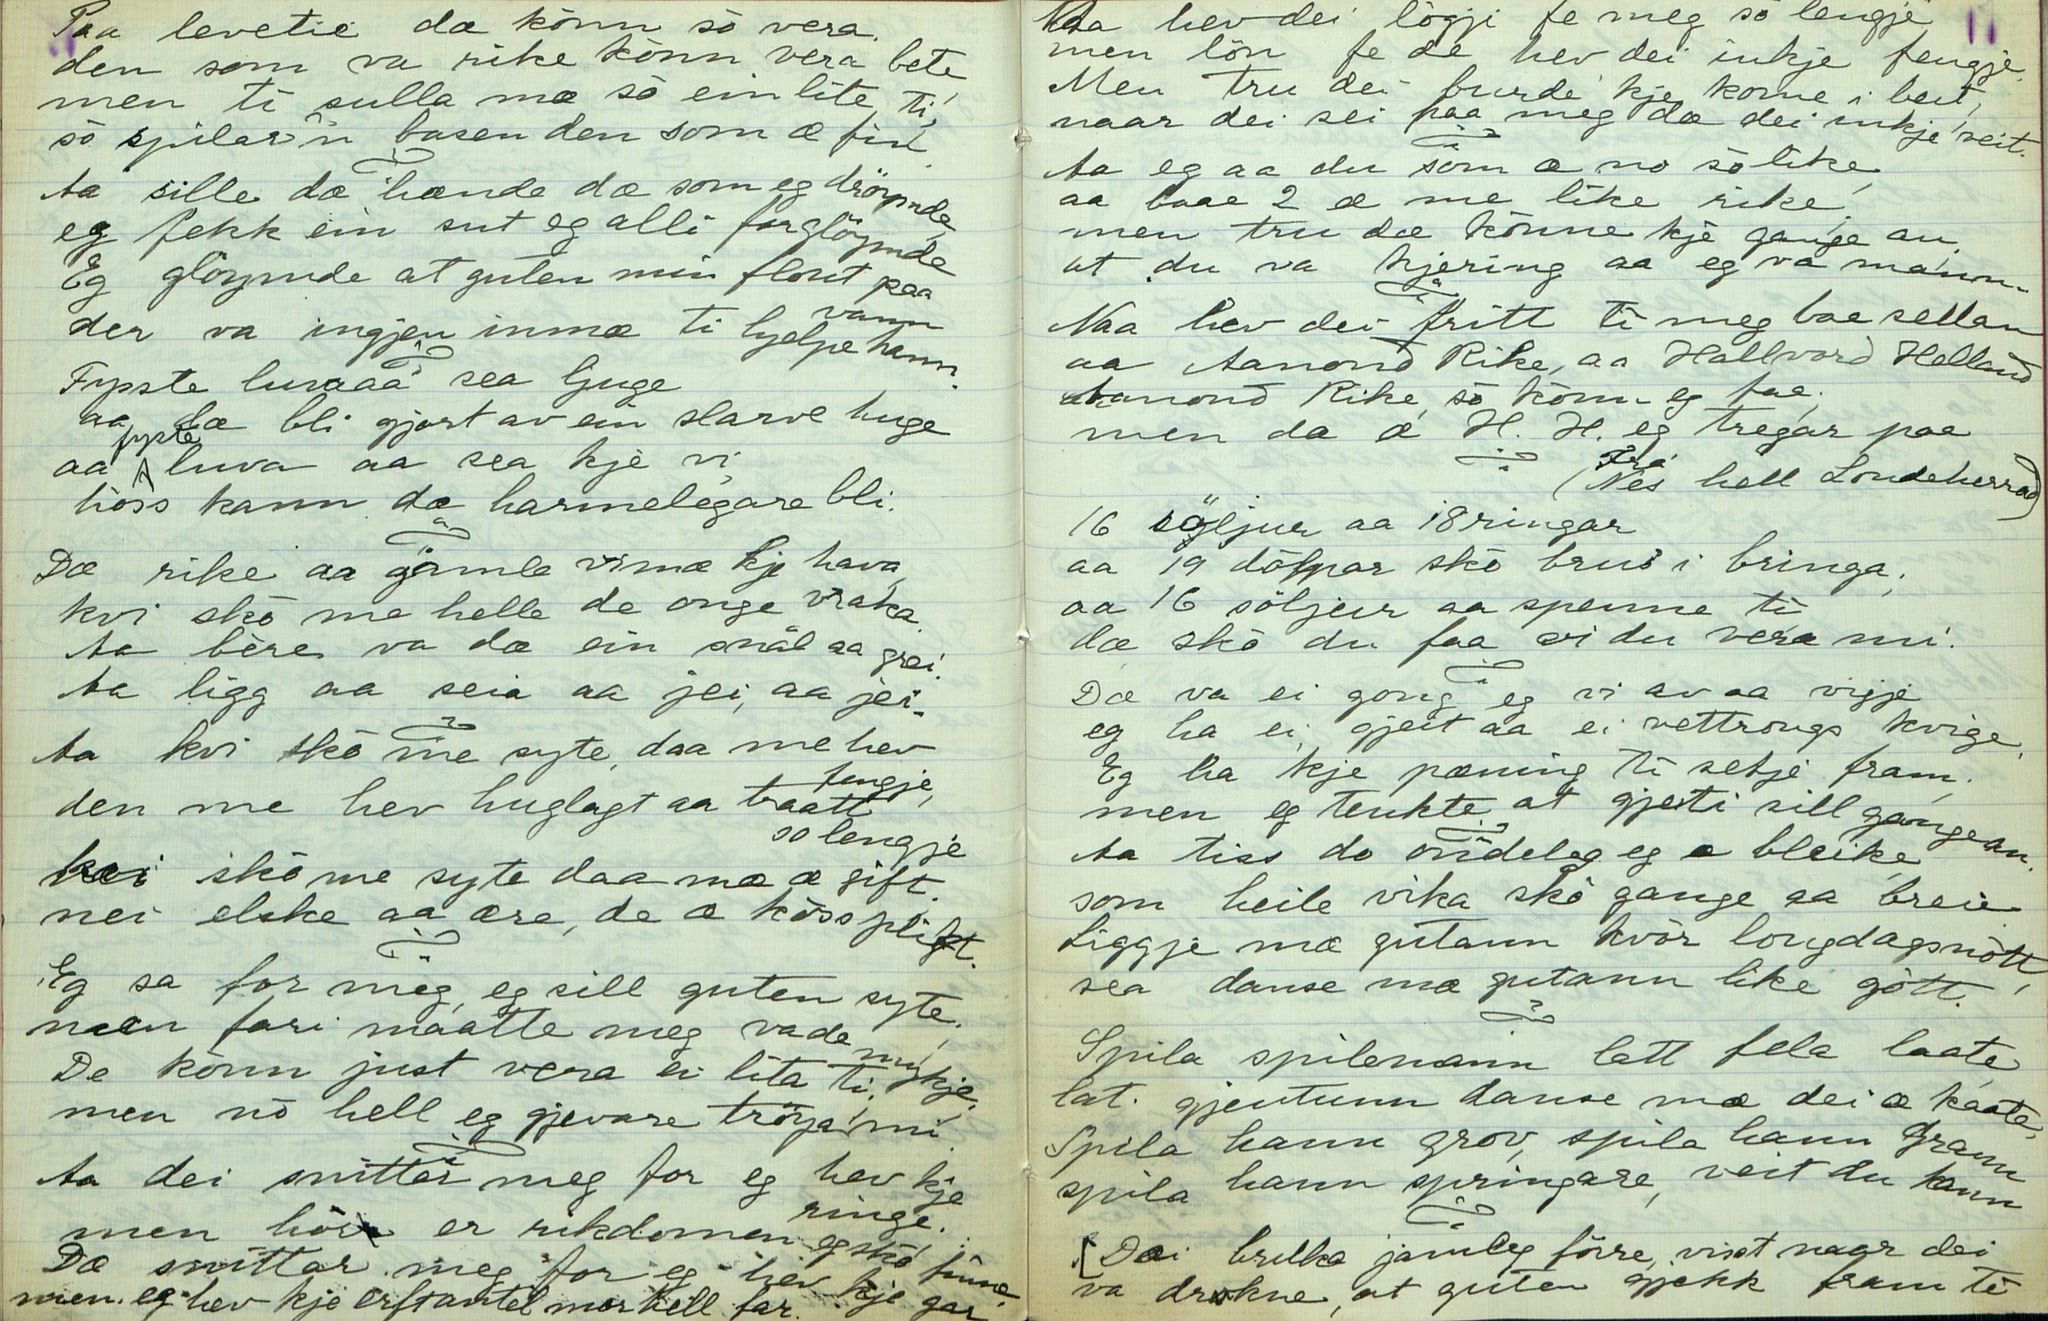 Paa levetie dæ könn sò vera,
den som va rike könn vera bete
men ti sulla mæ sò ein lite ti,
sò spilar'n basen den som æ fin
Aa sille dæ hænde dæ som eg dröymde,
eg fekk ein sut eg alli forglöymde
Eg glöymde at guten min flout paa vann
der va ingjen inmæ ti hjelpe hann.
Fyste luva aa sea ljuge
aa dæ bli gjort av ein slarve huge
aa fyste luva aa sea kje vi
hòss kann dæ harmelegare bli.
Dæ rike aa gamle vi mæ kje hava,
kvi skò me helle de onge vraka.
Aa bère va dæ ein snål aa grei
Aa ligg aa seia aa jei, aa jei.
Aa kvi skò me syte, daa me hev fengje,
den me hev huglagt aa traatt so lengje
kvi skò me syte daa mæ æ gift
nei elske aa ære, de æ kòss plikt.
Eg sa for meg, eg sill guten syte,
men fari maatte meg vade mykje,
De könn just vera ei lita ti,
men nò hell eg gjevare tröya mi
Aa dei snittar meg for eg hev kje ringe.
men hòr er rikdomen eg skò finne.
Dæ snittar meg for eg hev kje gar
men eg hev kje erft antel mor hell far.
Naa hev dei lögji fe meg sò lengje
men lön fe de hev dei inkje fengje.
Men tru dei burde kje kome i beit,
naar dei sei paa meg dæ dei inkje veit.
Aa eg aa du som æ no sò like,
aa baae 2 æ me like rike,
men tru dæ könne kje gange an,
at du va kjering aa eg va mann.
Naa hev dei fritt ti meg bae sellan
aa Aanond Rike, aa Hallvord Helland
Aanond Rike, sò könn eg faa,
men dæ æ H. H. eg tregar paa
(Frå Nes hell Londeherrad)
16 söljur aa 18 ringar
aa 19 dölpar skò brus i bringa,
aa 16 söljur aa spenne ti
dæ skò du faa vi du vera mi.
Dæ va ei gong eg vi av aa vigje
eg ha ei gjeit aa ei vettrongs kvige,
Eg ha kje pæning ti setje fram,
men eg tenkte at gjeiti sill gange an.
Aa tiss do ondeleg eg æ bleike,
som heile vika skò gange aa breie
Liggje mæ gutann kvòr longdagsnòtt,
sea danse mæ gutann like gòtt.
Spila spilemann latt fela laate,
lat gjentunn danse mæ dei æ kaate,
Spila hann grov, spila hann grann
spila hann springare, veit du kann
[Dei brukla jamleg förre, visst naar dei
va drokne, at guten gjekk fram te